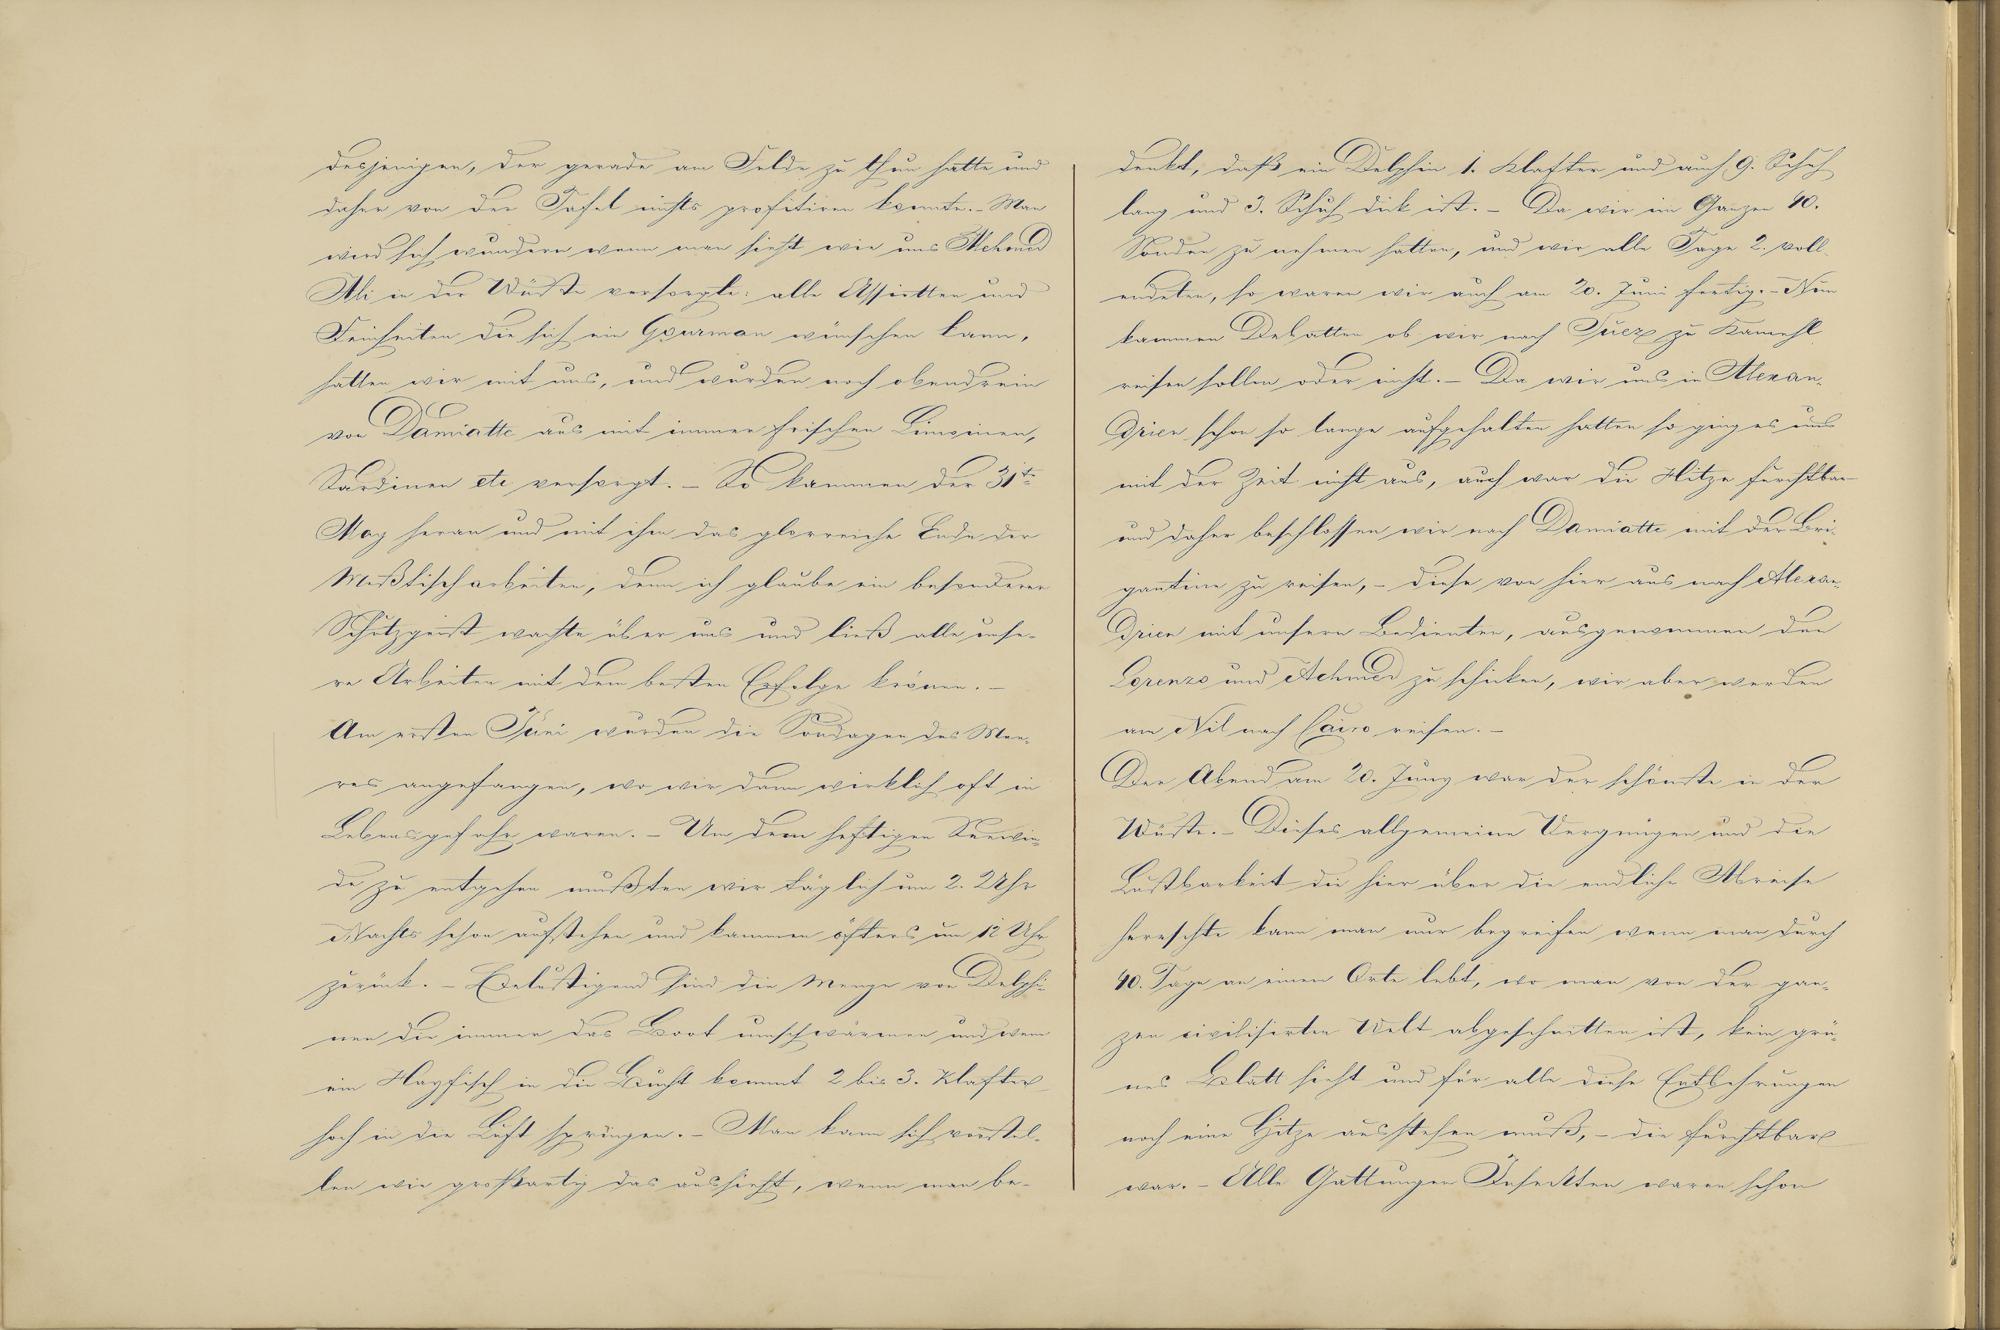 desjenigen, der gerade am Felde zu thun hatte und
daher von der Tafel nichts profitiren konnte. – Man
wird sich wundern wenn man sieht wie uns Mehmed
Ali in der Wüste versorgte: alle Assietten und
Feinheiten die sich ein Gourman wünschen kann,
hatten wir mit uns, und wurden noch obendrein
von Damiatte aus mit immer frischen Limonien,
Sardinen etc versorgt. – So kammen der 31te
May heran und mit ihm das glorreiche Ende der
Meßtischarbeiten, denn ich glaube ein besonderer
Schutzgeist wachte über uns und ließ alle unse-
re Arbeiten mit dem besten Erfolge krönen. –
Am ersten Juni wurden die Sondagen des Mee-
res angefangen, wo wir dann wirklich oft in
Lebensgefahr waren. – Um dem heftigen Seewin-
de zu entgehen mußten wir täglich um 2. Uhr
Nachts schon aufstehen und kammen öfters um 12 Uhr
zurück. – Belustigend sind die Menge von Delphi-
nen die immer das Boot umschwärmen und wenn
ein Hayfisch in die Bucht kommt 2 bis 3. Klafter
hoch in die Luft springen. – Man kann sich vorstel-
len wie großartig das aussieht, wenn man be-
denkt, daß ein Delphin 1. Klafter und auch 9. Schuh
lang und 3. Schuh dick ist. – Da wir im Ganzen 40.
Sonden zu nehmen hatten, und wir alle Tage 2. voll-
endeten, so waren wir auch am 20. Juni fertig. – Nun
kammen Debatten ob wir nach Suez zu Kameehl
reisen sollen oder nicht. – Da wir uns in Alexan-
drien schon so lange aufgehalten hatten so ging es uns
mit der Zeit nicht aus, auch war die Hitze furchtbar
und daher beschlossen wir nach Damiatte mit der Bri-
gantine zu reisen, – diese von hier aus nach Alexan-
drien mit unsern Bedienten, ausgenommen den
Lorenzo und Achmed zu schicken, wir aber werden
am Nil nach Cairo reisen. –
Der Abend am 20. Juny war der schönste in der
Wüste. – Dieses allgemeine Vergnügen und die
Lustbarkeit die hier über die endliche Abreise
herrschte kann man nur begreifen wenn man durch
40. Tage an einem Orte lebt, wo man von der gan-
zen civilisirten Welt abgeschnitten ist, kein grü-
nes Blatt sieht und für alle diese Entbehrungen
noch eine Hitze ausstehen muß, – die furchtbar
war. – Alle Gattungen Insekten waren schon